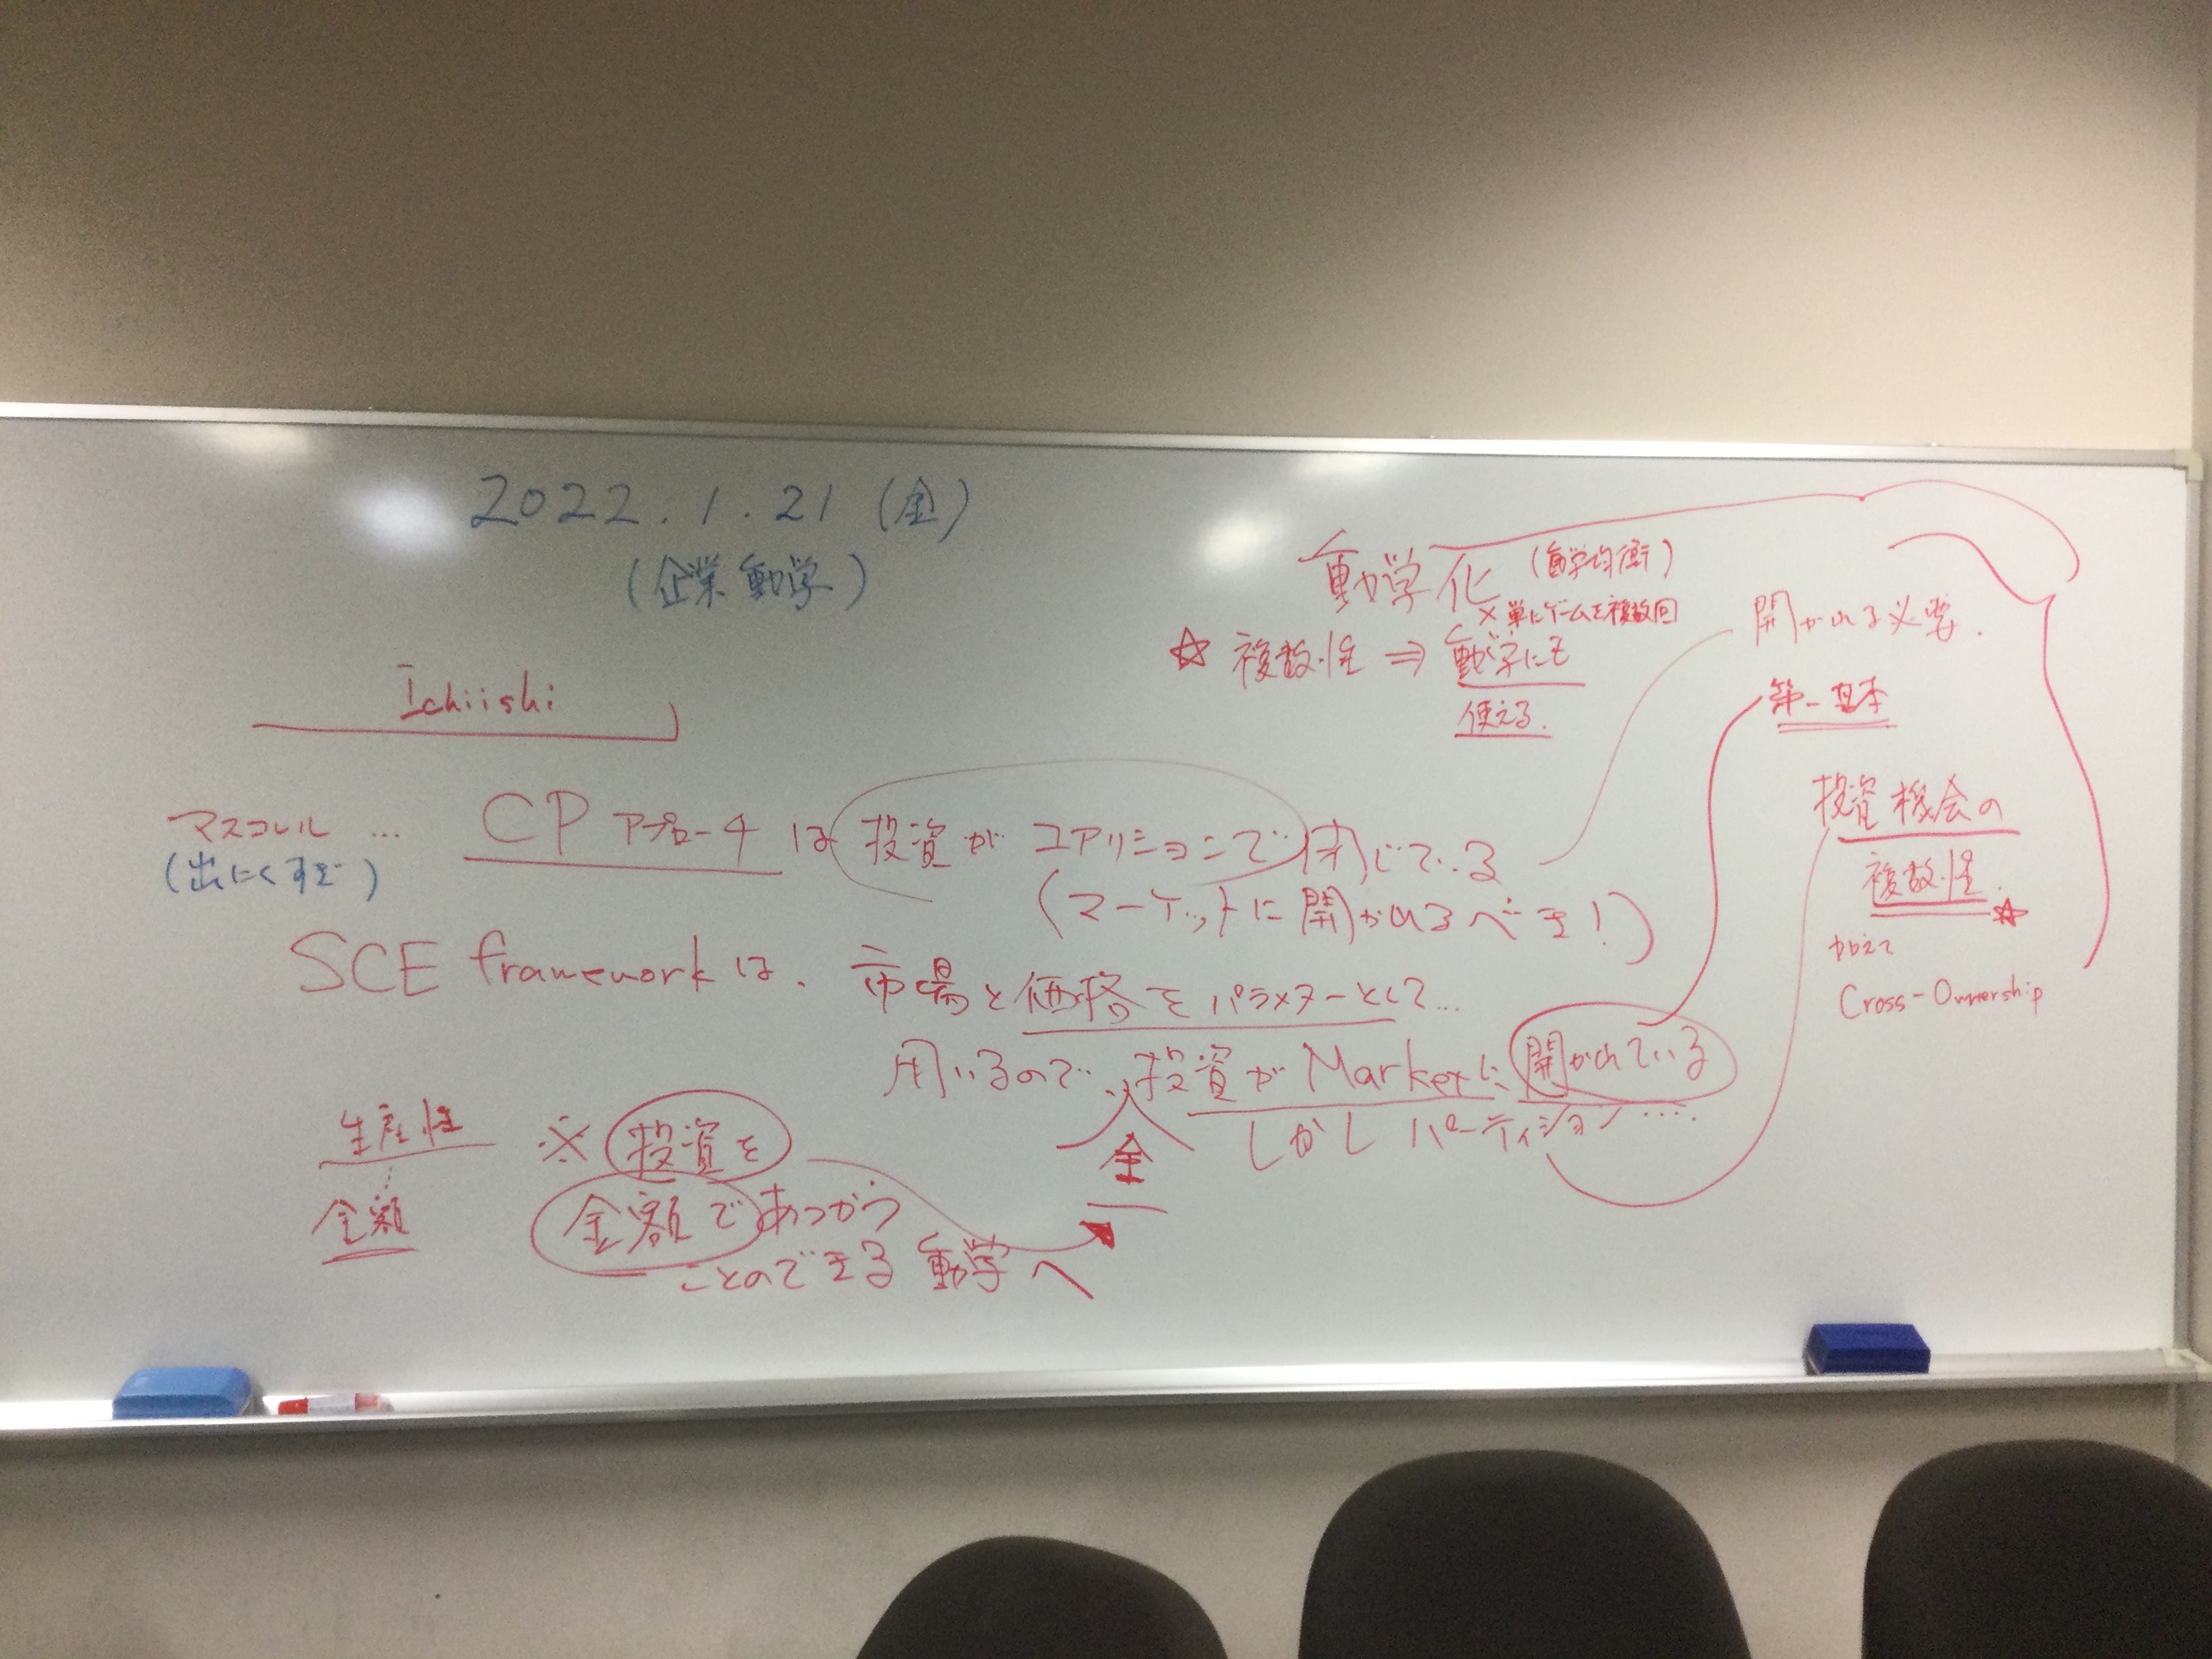 2022.1.21 (金)
(企業動学)
Ichiishi
マスコレル … CPアプローチは投資がコアリションで閉じている
(出にくすぎ)
(マーケットに開かれるべき!)
SCE frameworkは、市場と価格をパラメターとして…
用いるので、投資がMarketに開かれている
しかしパーティション….
全
生産性
金額
※ 投資を
金額であつかう
ことのできる動学へ
動学化 (動学均衡)
× 単にゲームを複数回
☆ 複数性 ⇒ 動学にも
使える.
開かれる必要.
第一基本
投資機会の
複数性. ☆
加えて
Cross-Ownership